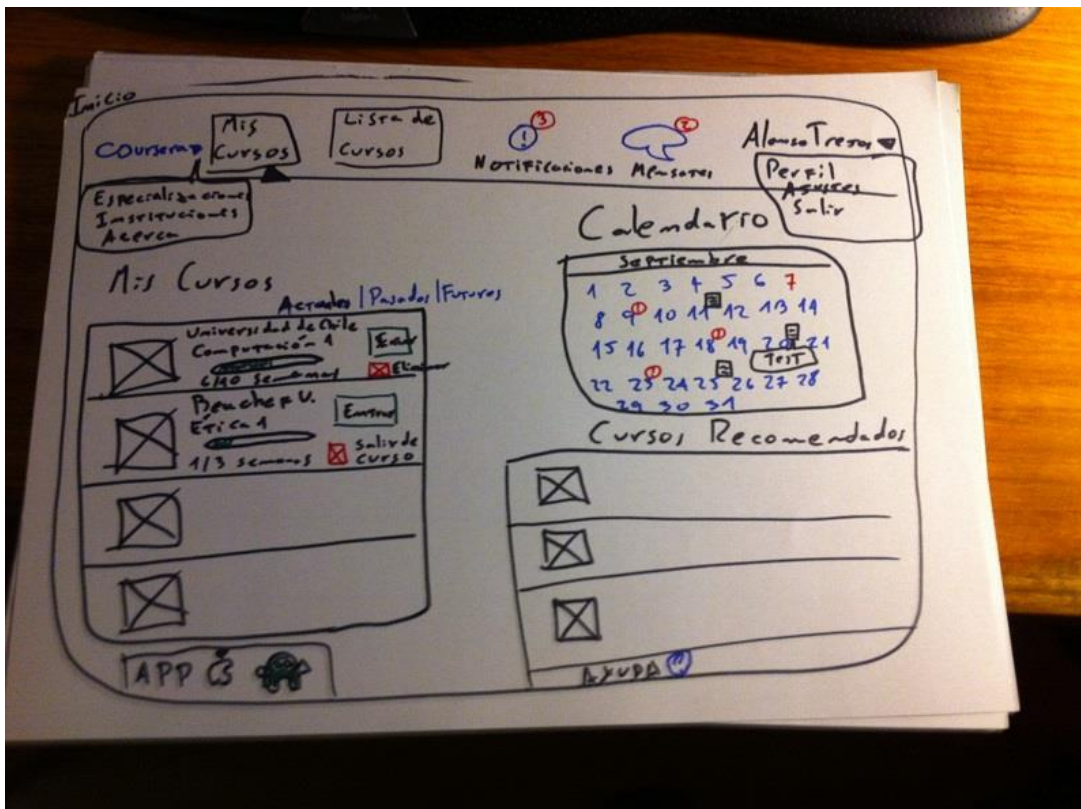 Inicio
Coursera
Mis
Cursos
Lista de
Cursos
3
Notificaciones
2
Mensajes
Alonso
Perfil
Ajustes
Salir
Especializaciones
Instituciones
Acerca
Mis Cursos
Actuales | Pasados | Futuros
Universidad de Chile
Computación 1
6/10 semanas
Eliminar
U.
Ética 1
1/3 semanas
Entrar
Salir de
curso
Calendario
Septiembre
1 2 3 4 5 6 7
8 9 10 11 12 13 14
15 16 17 18 19 20 21
TEST
22 23 24 25 26 27 28
29 30 31
Cursos Recomendados
APP
AYUDA